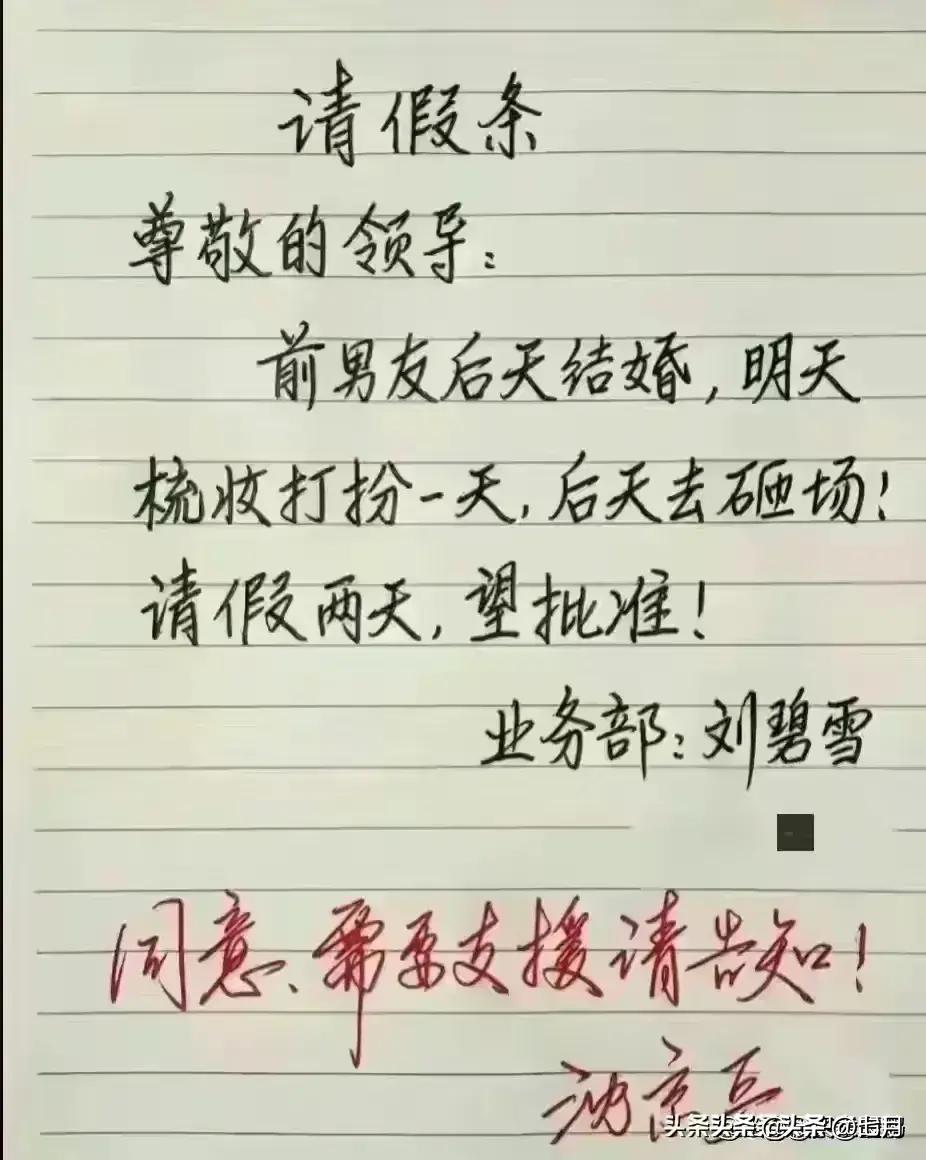 请假条
尊敬的领导：
前男友后天结婚，明天
梳妆打扮一天，后天去砸场！
请假两天，望批准！
业务部：刘碧雪
同意、需要支援请告知！
头条头条@头条@七月